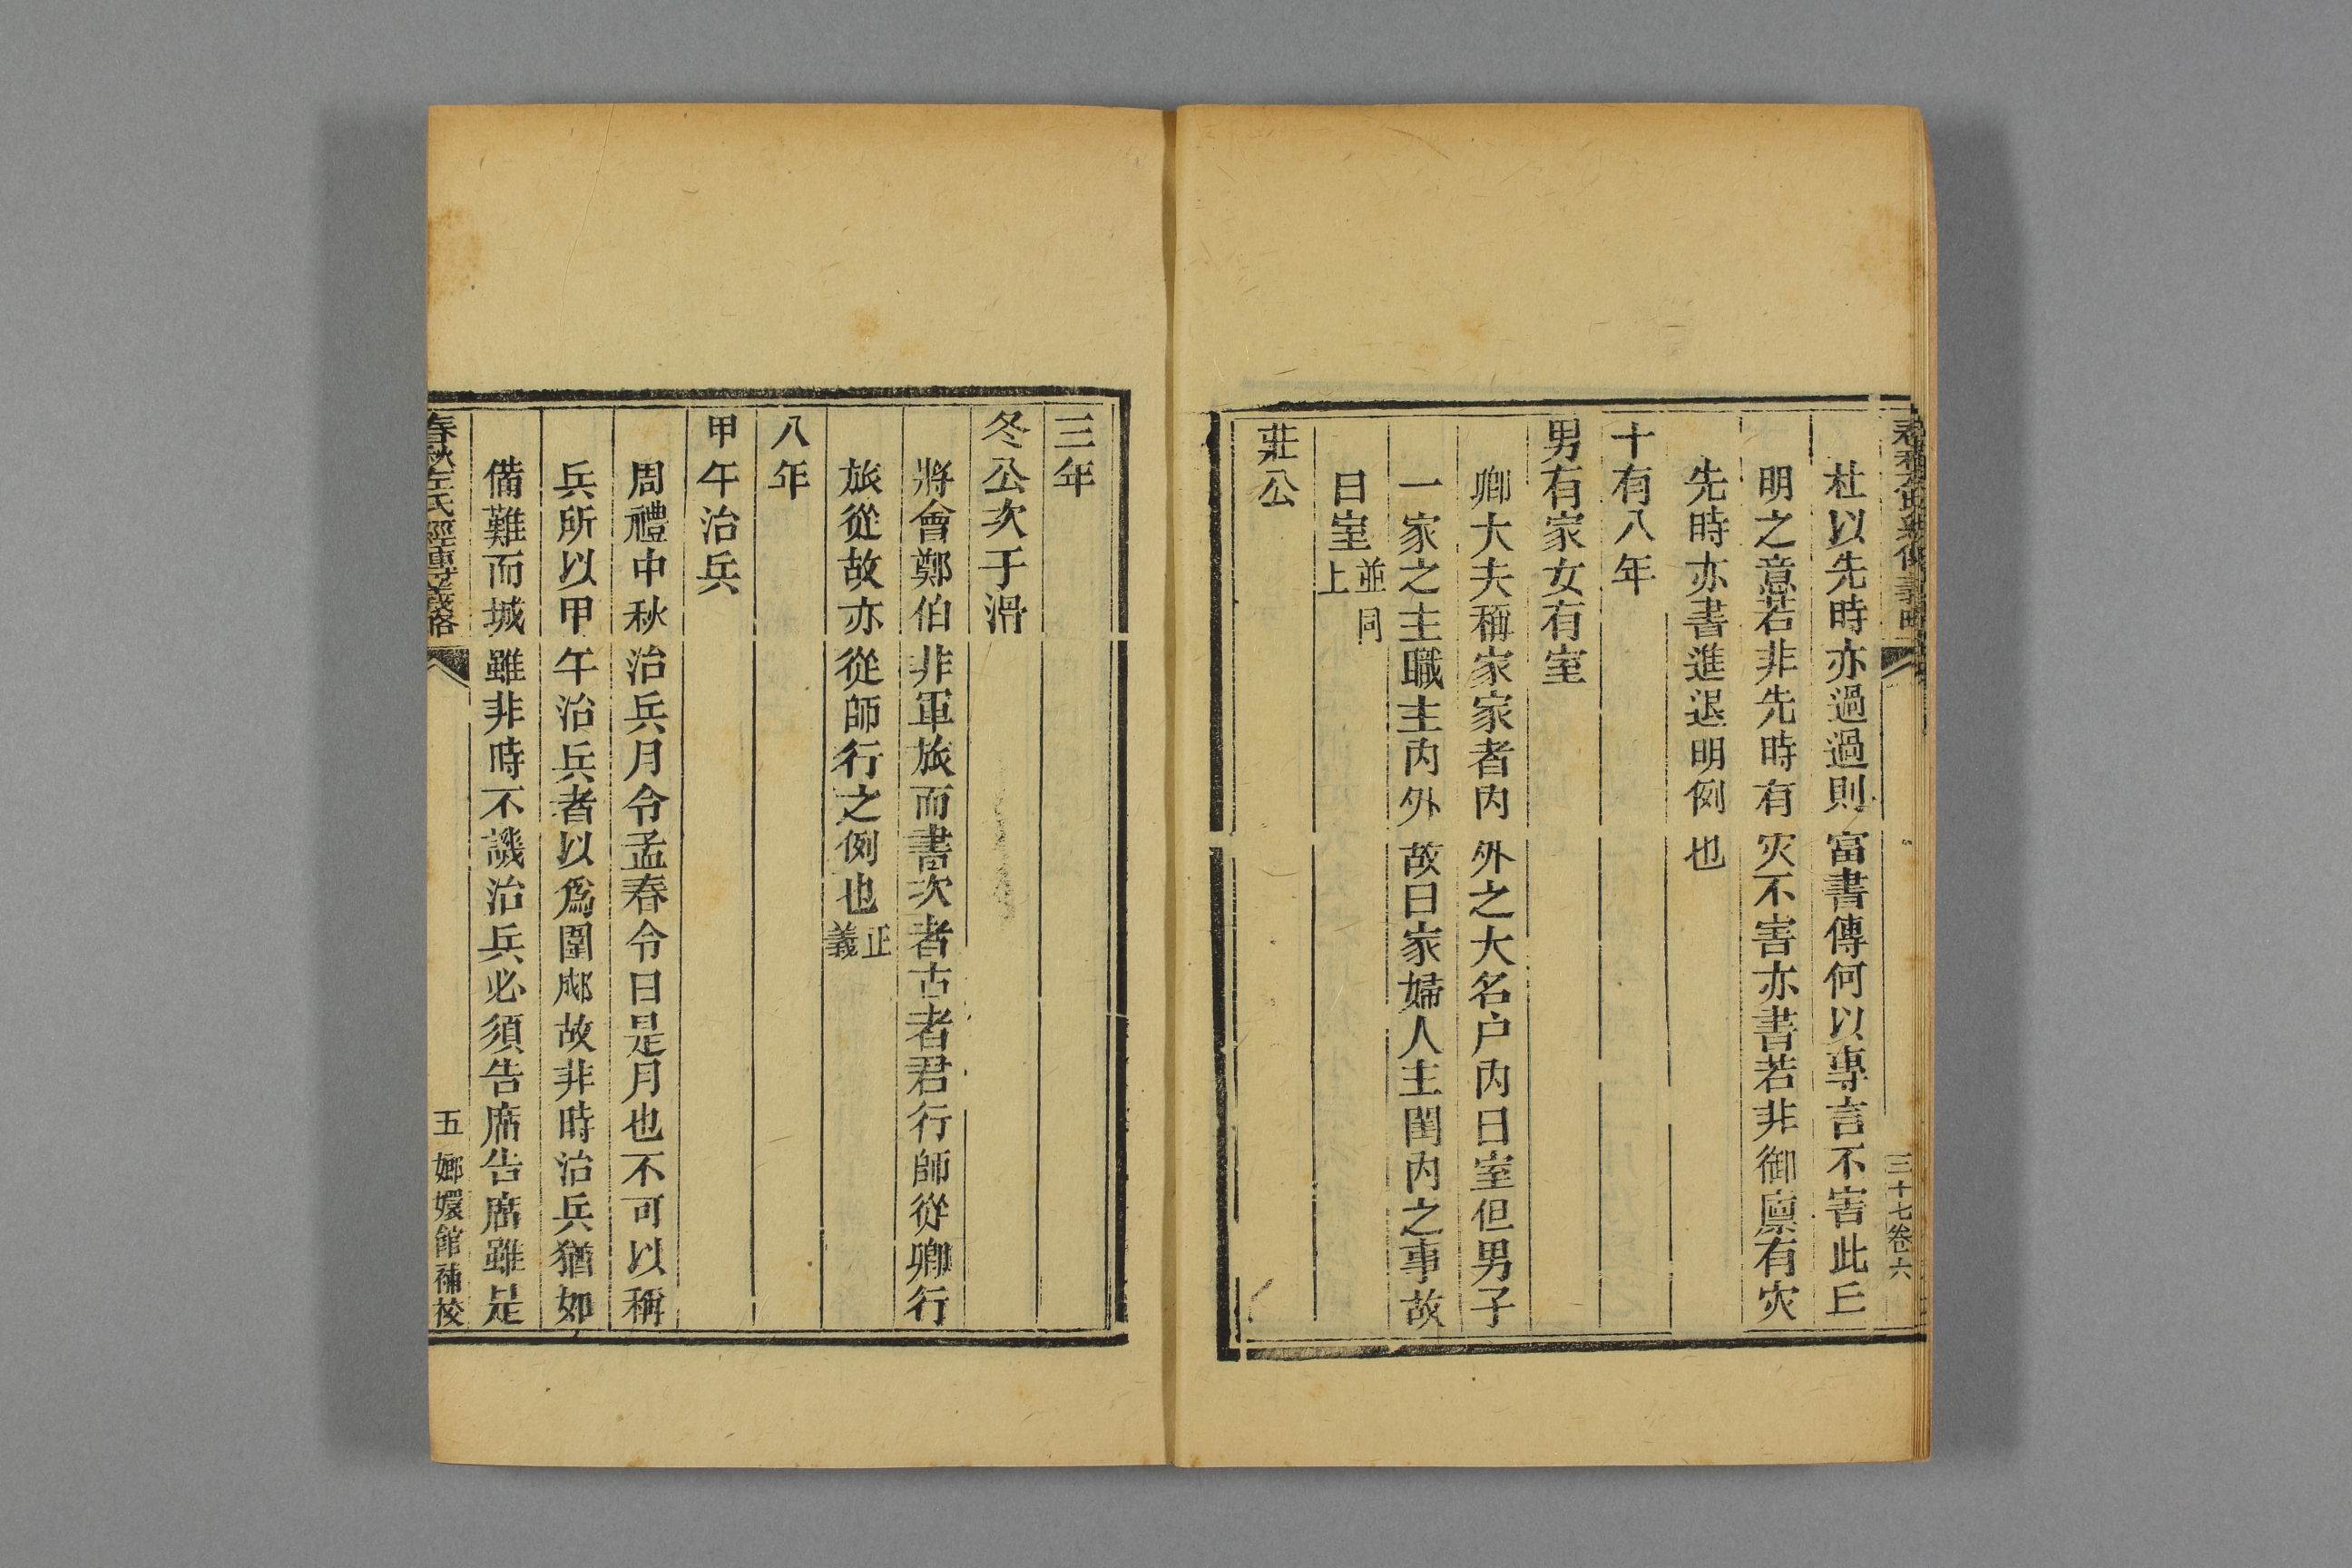 杜以先時亦過過則富書傳何以專言不害此丘
明之意若非先時有灾不害亦書若非御廩有灾
先時亦書進退明例也
十有八年
男有家女有室
卿大夫稱家家者內外之大名户內曰室但男子
一家之主職主內外故曰家婦人主閨內之事故
曰室並同上
莊公
三十七卷六
三年
冬公次于滑
將會鄭伯非軍旅而書次者古者君行師從卿行
旅從故亦從師行之例也正義
八年
甲午治兵
周禮中秋治兵月令孟春令曰是月也不可以稱
兵所以甲午治兵者以爲圍郕故非時治兵猶如
備難而城雖非時不譏治兵必須告廟告廟雖是
春秋左氏經傳義略
五
嫏嬛館補校